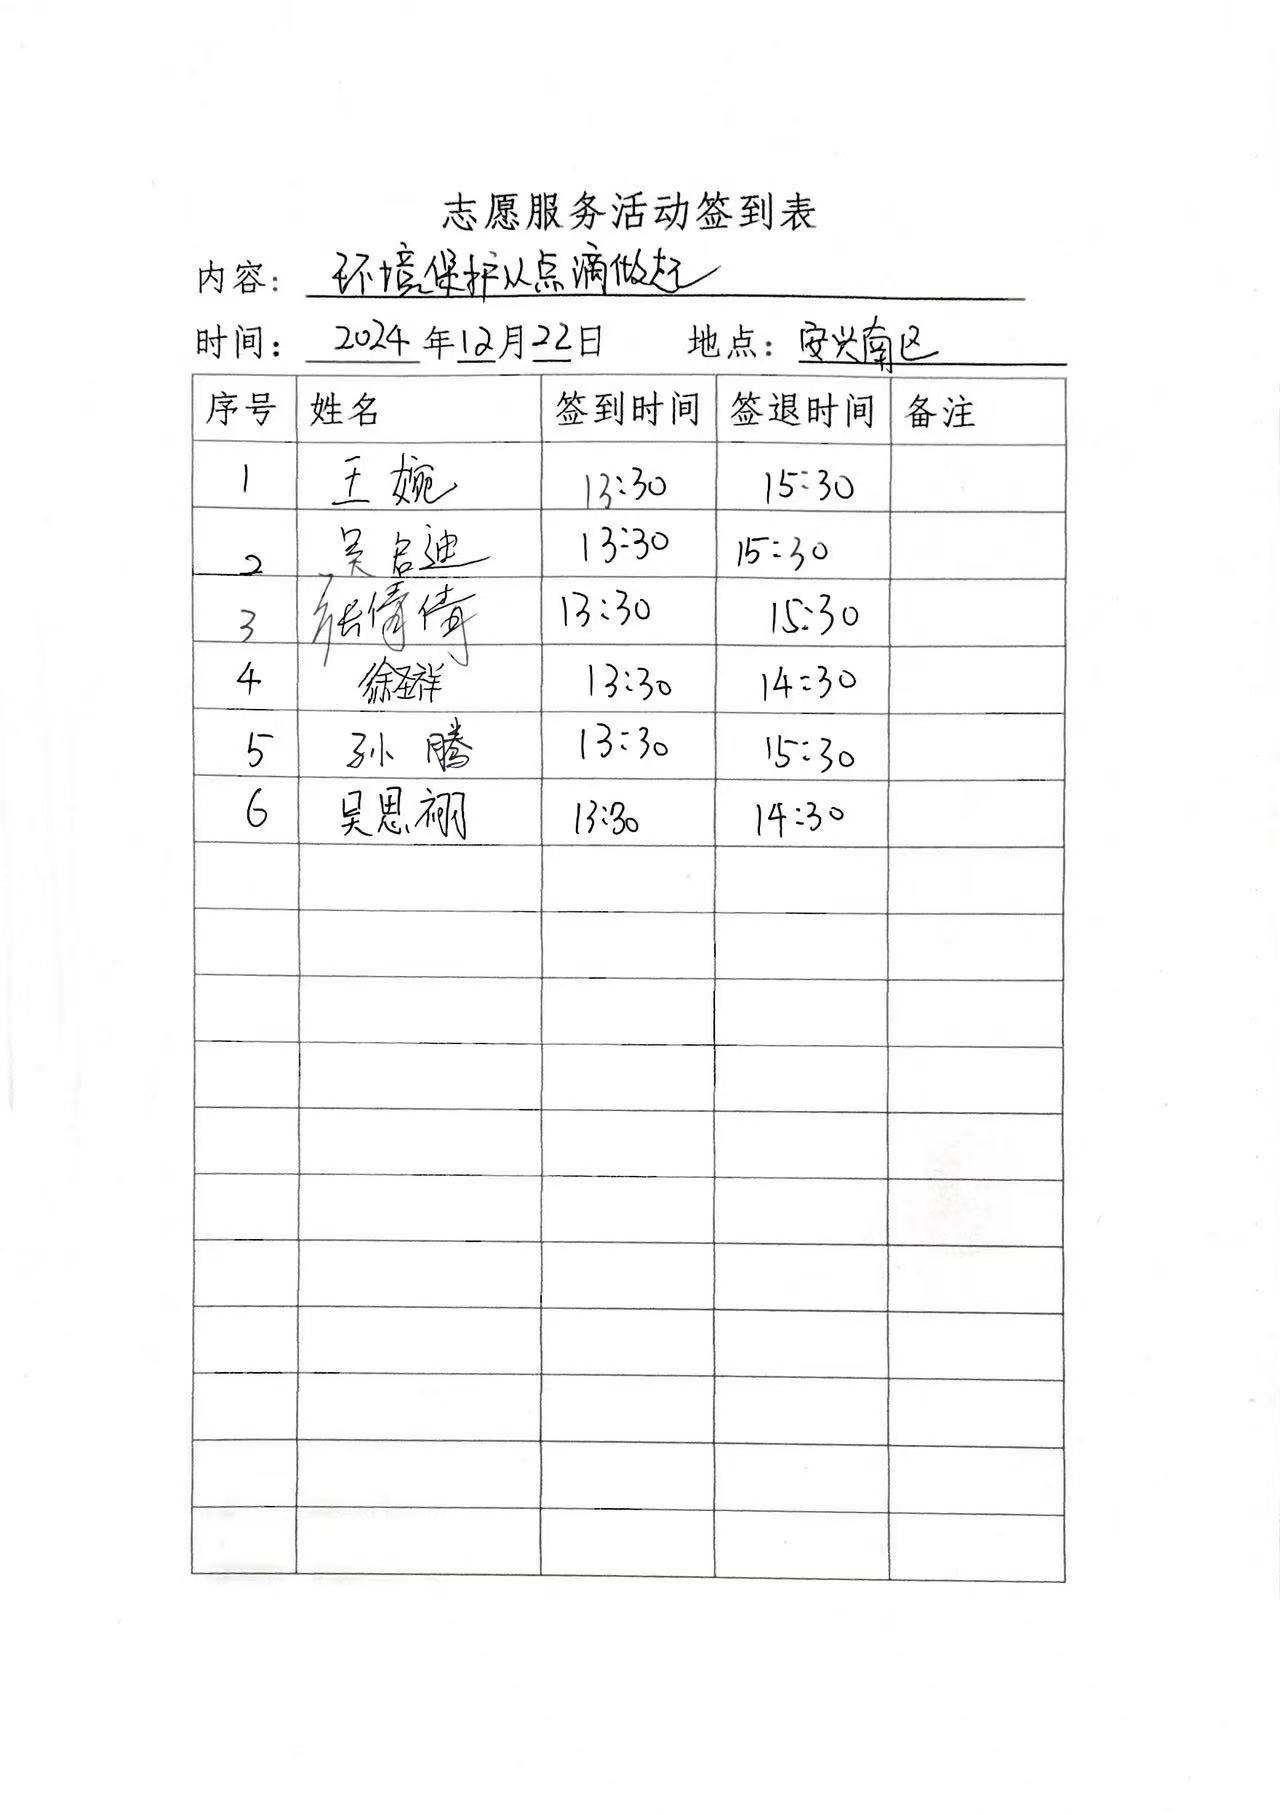 志愿服务活动签到表
内容: 环境保护从点滴做起
时间: 2024年12月22日 地点: 安兴南区
序号 姓名 签到时间 签退时间 备注
1 王婉 13:30 15:30
2 吴启迪 13:30 15:30
3 张倩倩 13:30 15:30
4 徐圣祥 13:30 14:30
5 孙腾 13:30 15:30
6 吴思栩 13:30 14:30